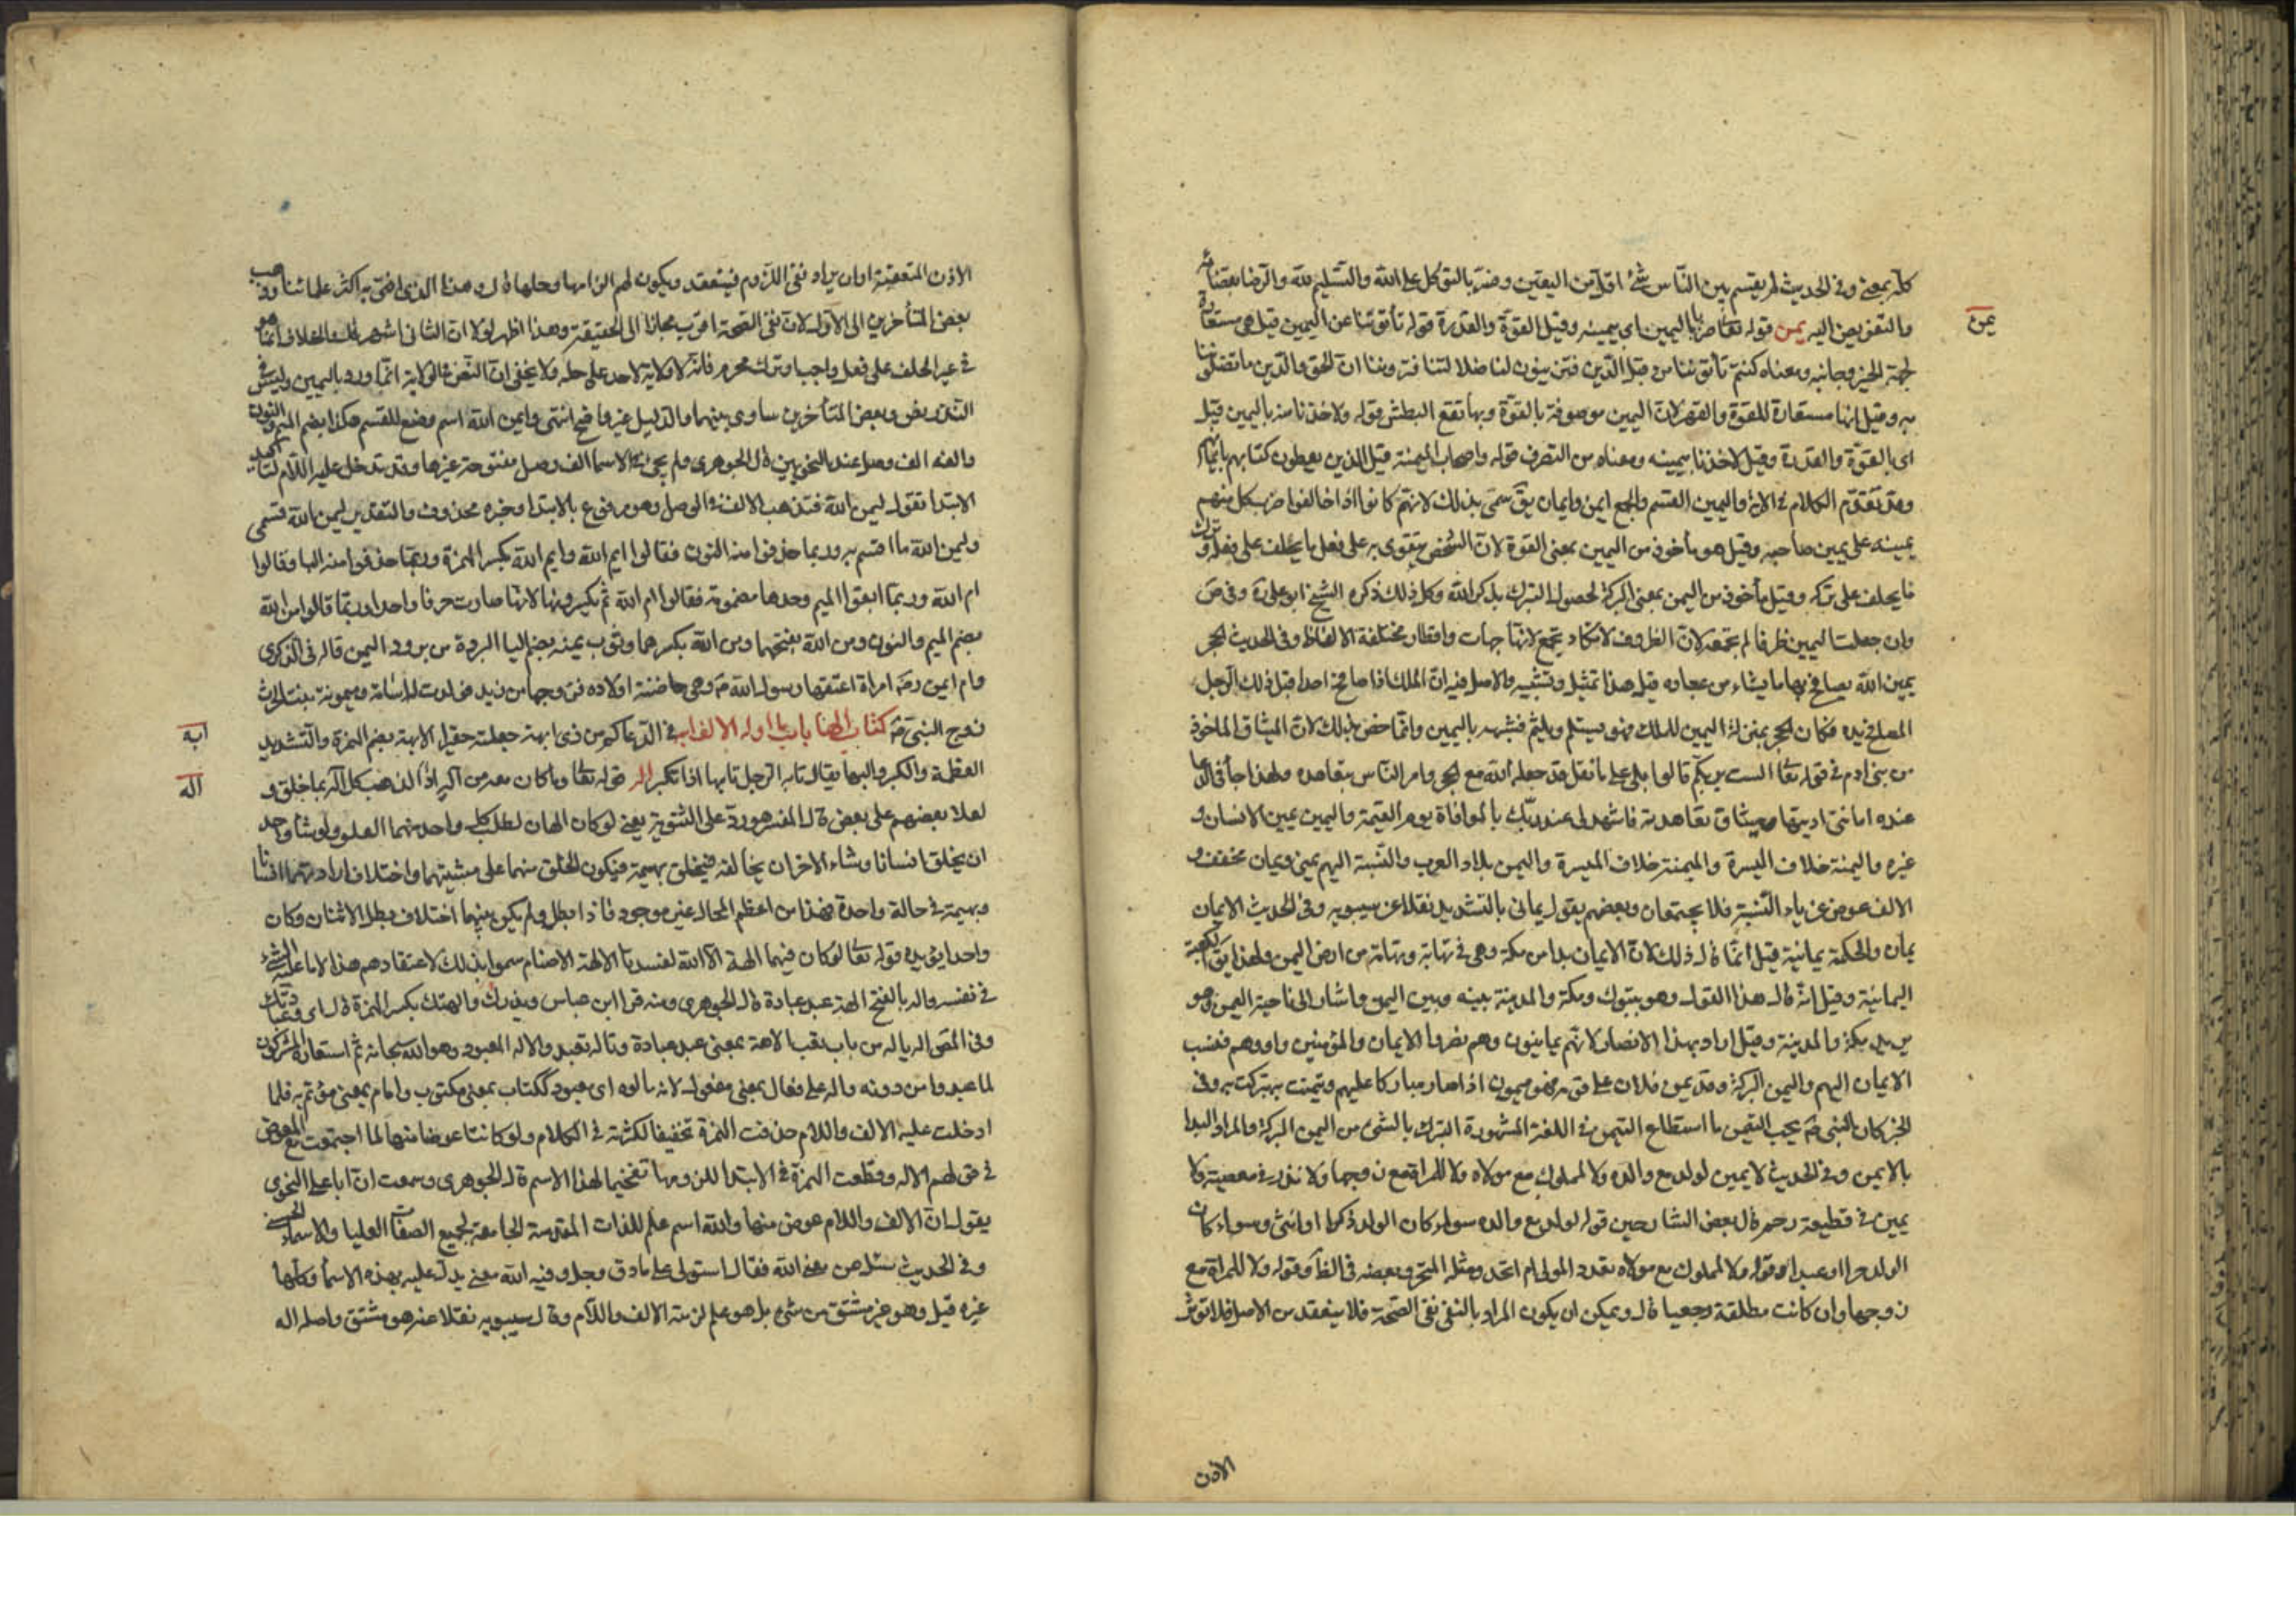 كله بمعنى وفى الحديث لم يقسم بين الناس شئ اقل من اليقين وفسر بالتوكل على الله والتسليم لله والرضا بقضائه
والتفويض اليه يمن قوله تعالى ضربا باليمين اى بيمينه وقيل القوة والقدرة قوله تأتوننا عن اليمين قيل هى مستعارة
يمن
لجهة الخير وجانبه ومعناه كنتم تأتوننا من قبل الدين فتزينون لنا ضلالتنا فتروننا ان الحق والدين ما تضلوننا
به وقيل انها مستعارة للقوة والقهر لان اليمين موصوفة بالقوة وبها تقع البطش قوله ولاخذنا منه باليمين قيل
اى بالقوة والقدرة وقيل لاخذنا بيمينه ومعناه من التصرف قوله واصحاب الميمنة قيل الذين يعطون كتابهم بايمانهم
وقد تقدم الكلام فى الاية واليمين القسم والجمع ايمن وايمان يق سمى بذلك لانهم كانوا اذا تحالفوا ضرب كل منهم
يمينه على يمين صاحبه وقيل هو مأخوذ من اليمين بمعنى القوة لان الشخص يتقوى به على فعل ما يحلف على فعله وترك
ما يحلف على تركه وقيل مأخوذ من اليمن بمعنى البركة لحصول التبرك بذكر الله وكل ذلك ذكره الشيخ ابو على ره وفى ص
وان جعلت اليمين ظرفا لم تجمعه لان الظروف لا تكاد تجمع لانها جهات واقطار مختلفة الالفاظ وفى الحديث الحجر
يمين الله يصافح بها ما يشاء من عباده قيل هذا تمثيل وتشبيه والاصل فيه ان الملك اذا صافح احدا قبل ذلك الرجل
المصافح يده فكان الحجر بمنزلة اليمين للملك فهو يستلم ويلثم فشبهه باليمين وانما خص بذلك لان الميثاق المأخوذ
من بنى ادم فى قوله تعالى الست بربكم قالوا بلى على ما نقل قد جعله الله مع الحجر وامر الناس بتعاهده ولهذا جاء فى الدعاء
عنده امانتى اديتها وميثاقى تعاهدته فاشهد لى عند ربك بالموافاة يوم القيمة واليمين يمين الانسان و
غيره واليمنة خلاف اليسرة والميمنة خلاف الميسرة واليمن بلاد العرب والنسبة اليهم يمنى ويمان مخففة و
الالف عوض عن ياء النسبة فلا يجتمعان وبعضهم يقول يمانى بالتشديد نقلا عن سيبويه وفى الحديث الايمان
يمان والحكمة يمانية قيل انما قال ذلك لان الايمان بدا من مكة وهى فى تهامة وتهامة من ارض اليمن ولهذا يق الكعبة
اليمانية وقيل انه قال هذا القول وهو بتبوك ومكة والمدينة بينه وبين اليمن واشار الى ناحية اليمن وهو
يريد مكة والمدينة وقيل اراد بهذا الانصار لانهم يمانيون وهم نصروا الايمان والمؤمنين واووهم فنسب
الايمان اليهم واليمن البركة وقد يمن فلان على قومه فهو ميمون اذا صار مباركا عليهم وتيمنت به تبركت به وفى
الخبر كان النبى ص يحب التيمن ما استطاع التيمن فى اللغة المشهورة التبرك بالشئ من اليمن البركة والمراد البداء
بالايمن وفى الحديث لا يمين لولد مع والده ولا لمملوك مع مولاه ولا للمراة مع زوجها ولا نذر فى معصية ولا
يمين فى قطيعة رحم قال بعض الشارحين قوله لولد مع والده سواء كان الولد ذكرا او انثى وسواء كان
الولد حرا او عبدا وقوله ولا لمملوك مع مولاه تعدد المولى ام اتحد ومثله المتحرر بعضه فى الظاهر وقوله ولا للمراة مع
زوجها وان كانت مطلقة رجعيا قال ويمكن ان يكون المراد بالنفى نفى الصحة فلا ينعقد من الاصل فلا تؤثر
الاذن
الاذن المتعقبة او ان يراد نفى اللزوم فينعقد ويكون لهم الزامها وحلها قال وهذا الذى افتى به اكثر علمائنا وذهب
بعض المتأخرين الى الاول لان نفى الصحة اقرب مجازا الى الحقيقة وهذا اظهر لولا ان الثانى اشهر ذلك والخلاف انما هو
فى غير الحلف على فعل واجب او ترك محرم فانه لا ولاية لاحد على حله ولا يخفى ان النص فى الولاية انما ورد باليمين وليس فى
النذر نص وبعض المتأخرين ساوى بينهما والدليل غير واضح انتهى وايمن الله اسم وضع للقسم هكذا بضم الميم والنون
والفه الف وصل عند النحويين قال الجوهرى ولم يجئ فى الاسماء الف وصل مفتوحة غيرها وقد تدخل عليه اللام لتأكيد
الابتدا تقول ليمن الله فتذهب الالف فى الوصل وهو مرفوع بالابتدا وخبره محذوف والتقدير ليمن الله قسمى
وليمن الله ما اقسم به وربما حذفوا منه النون فقالوا ايم الله وايم الله بكسر الهمزة وربما حذفوا منه اليا وقالوا
ام الله وربما ابقوا الميم وحدها مضمومة فقالوا م الله ثم يكسرونها لانها صارت حرفا واحدا وربما قالوا من الله
بضم الميم والنون ومن الله بفتحهما ومن الله بكسرهما وثوب يمنه بضم اليا البردة من برود اليمن قاله فى الذكرى
وام ايمن رض امراة اعتقها رسول الله ص وهى حاضنة اولاده فزوجها من زيد فولدت له اسامة وميمونة بنت الحرث
زوج النبى ص كتاب الهاء باب ما اوله الالف ابه فى الدعا كم من ذى ابهة جعلته حقيرا الابهة بضم الهمزة والتشديد
ابه
العظمة والكبر والبهاء يقال تابه الرجل تابها اذا تكبر اله قوله تعالى وما كان معه من اله اذا لذهب كل اله بما خلق و
اله
لعلا بعضهم على بعض قال المفسر هو رد على الثنوية يعنى لو كان الهان لطلب كل واحد منهما العلو ولو شاء واحد
ان يخلق انسانا وشاء الاخر ان يخالفه فيخلق بهيمة فيكون الخلق منهما على مشيتهما واختلاف ارادتهما انسانا
وبهيمة فى حالة واحدة فهذا من اعظم المحال غير موجود فاذا بطل ولم يكن بينهما اختلاف بطل الاثنان وكان
واحدا يؤيده قوله تعالى لو كان فيهما الهة الا الله لفسدتا الالهة الاصنام سموا بذلك لاعتقادهم هذا لا ما عليه الشئ
فى نفسه واله بالفتح الهة عبد عبادة قال الجوهرى ومنه قرا ابن عباس ويذرك والهتك بكسر الهمزة قال اى وعبادتك
وفى المص اله ياله من باب تعب الاهة بمعنى عبد عبادة وتاله تعبد والاله المعبود وهو الله سبحانه ثم استعاره المشركون
لما عبدوا من دونه واله على فعال بمعنى مفعول لانه مالوه اى معبود ككتاب بمعنى مكتوب وامام بمعنى مؤتم به فلما
ادخلت عليه الالف واللام حذفت الهمزة تخفيفا لكثرته فى الكلام ولو كانتا عوضا منها لما اجتمعت مع المعوض
فى قولهم الاله وقطعت الهمزة فى الابتدا للزومها تفخيما لهذا الاسم قال الجوهرى وسمعت ان ابا على النحوى
يقول ان الالف واللام عوض منها والله اسم علم للذات المقدسة الجامعة لجميع الصفات العليا والاسماء الحسنى
وفى الحديث سئل عن معنى الله فقال استولى على ما دق وجل وفيه الله معنى يدل عليه بهذه الاسماء وكلها
غيره قيل وهو غير مشتق من شئ بل هو علم لزمته الالف واللام وقال سيبويه نقلا عنه هو مشتق واصله اله